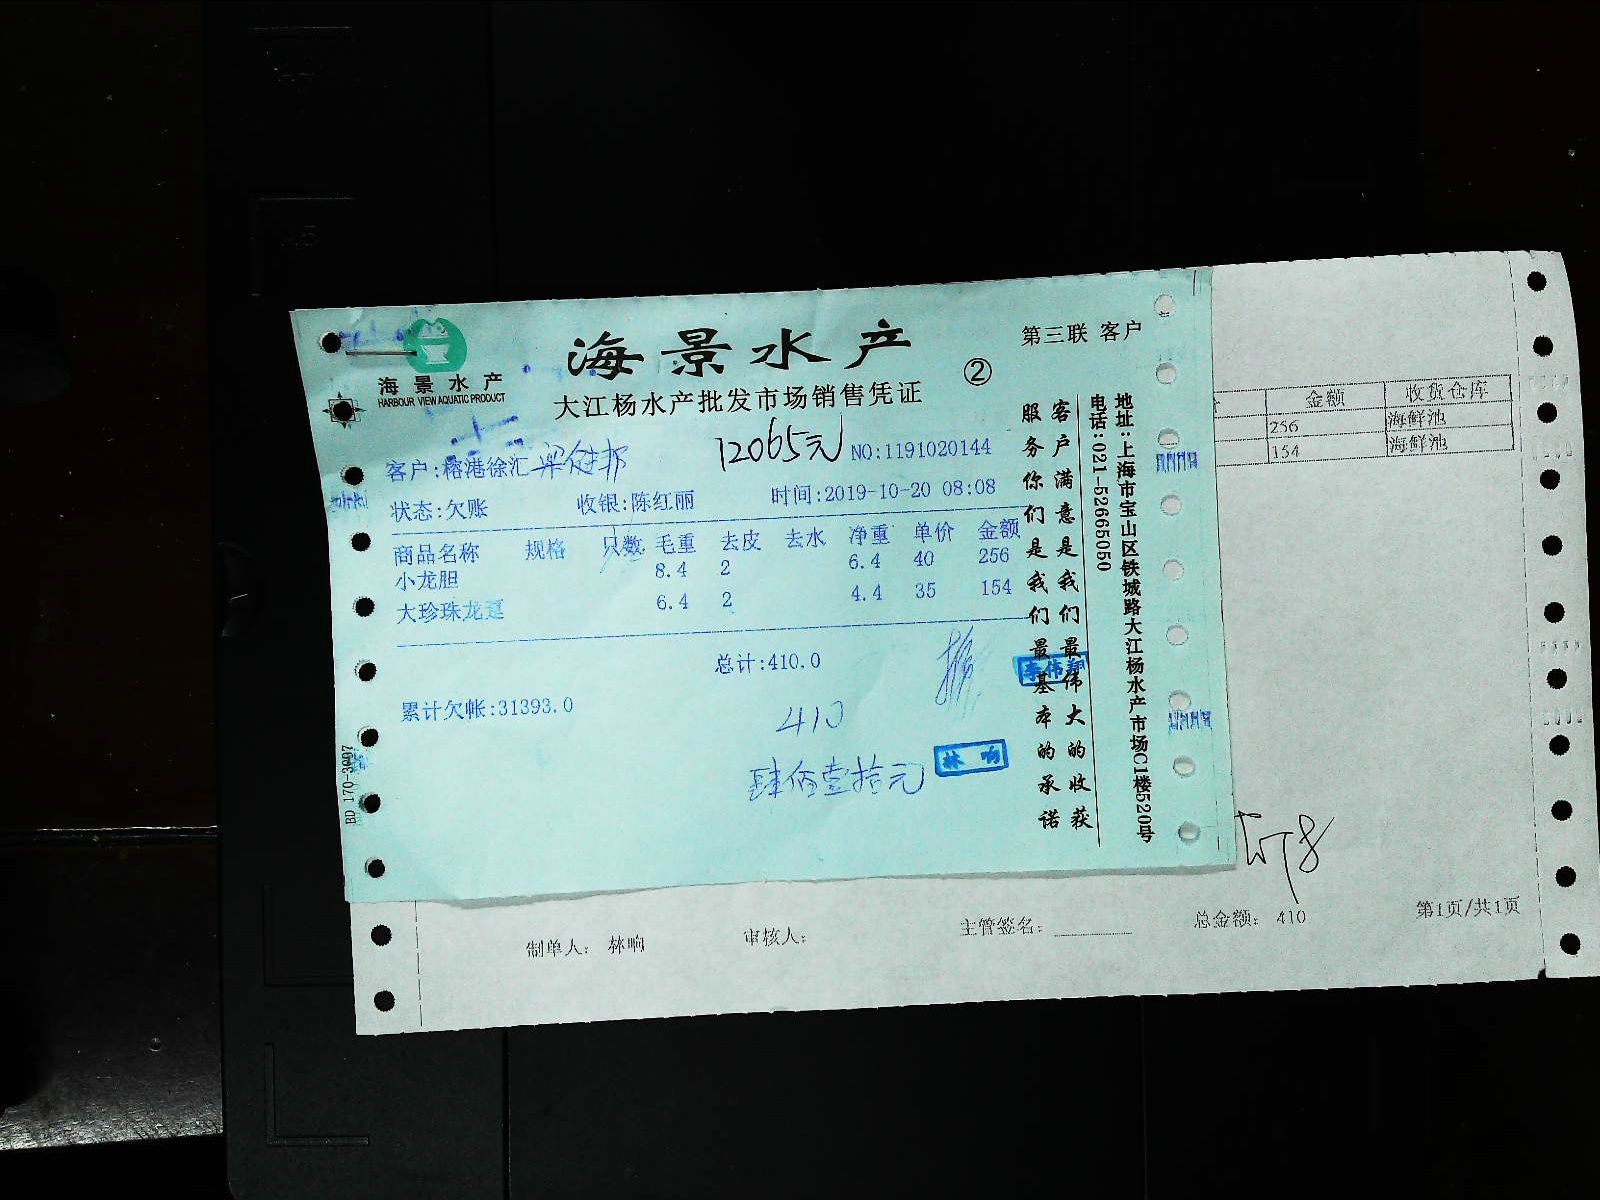 海景水产
HARBOUR VIEW AQUATIC PRODUCT
海景水产
大江杨水产批发市场销售凭证
②
第三联 客户
12065元
客户:榕港徐汇
NO:1191020144
状态:欠账 收银:陈红丽 时间:2019-10-20 08:08
商品名称 规格 只数 毛重 去皮 去水 净重 单价 金额
小龙胆 8.4 2 6.4 40 256
大珍珠龙趸 6.4 2 4.4 35 154
总计:410.0
累计欠帐:31393.0
410
肆佰壹拾元
林响
李伟翔
客户满意是我们最伟大的收获
服务你们是我们最基本的承诺
地址:上海市宝山区铁城路大江杨水产市场C1楼520号
电话:021-52665050
BD 170-3097
金额 收货仓库
256 海鲜池
154 海鲜池
制单人: 林响 审核人: 主管签名: 总金额: 410 第1页/共1页